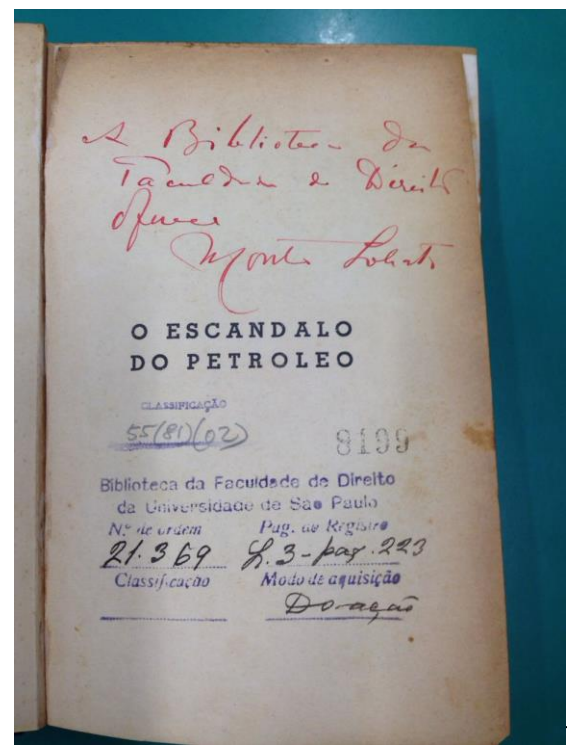 A Bibliotheca da
Faculdade de Direito
oferece
Monteiro Lobato
O ESCANDALO
DO PETROLEO
CLASSIFICAÇÃO
55(81)(02)
8199
Biblioteca da Faculdade de Direito
da Universidade de São Paulo
N.º de ordem Pag. do Registro
21.369 L.3-pag.223
Classificação Modo de aquisição
Doação